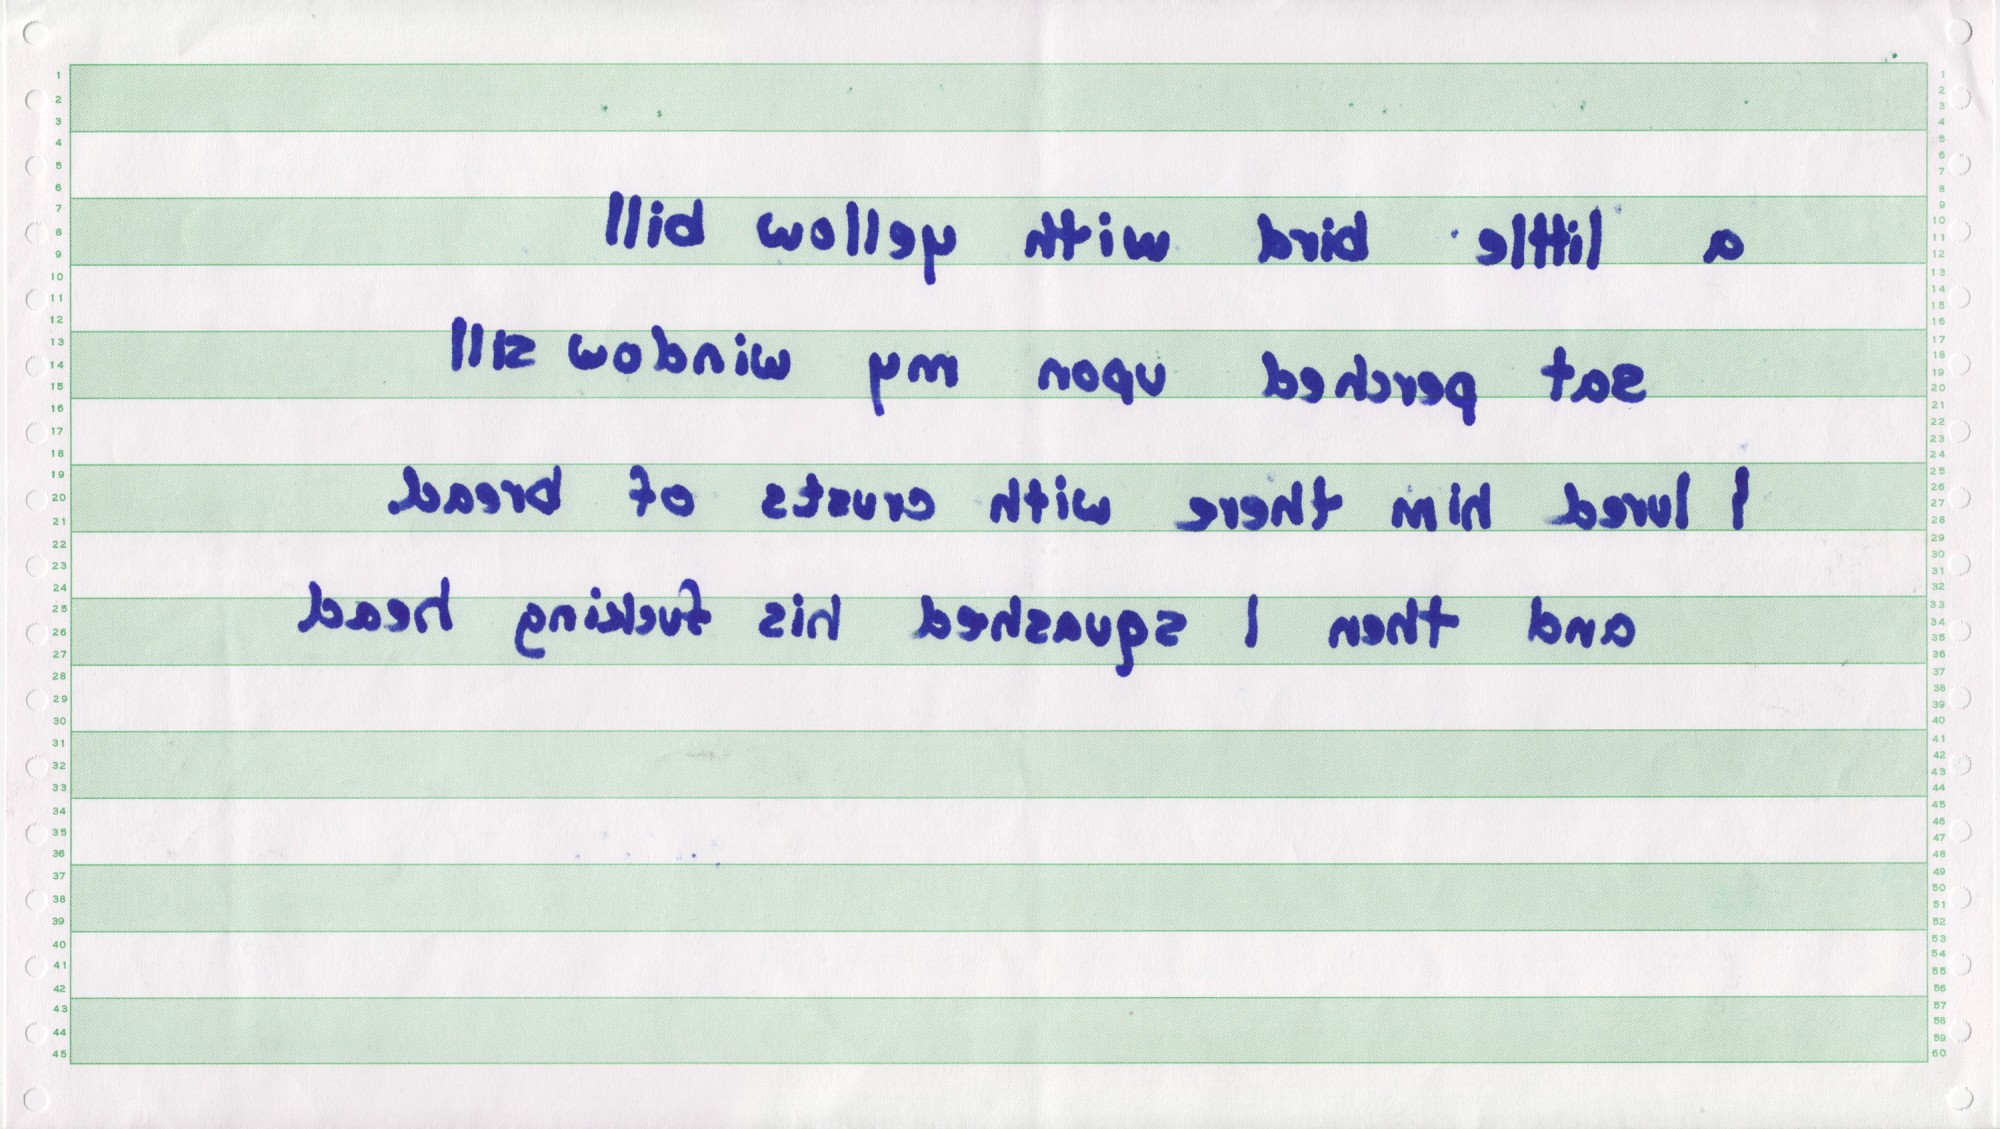 a little bird with yellow bill
sat perched upon my window sill
I lured him there with crusts of bread
and then I squashed his fucking head
1
2
3
4
5
6
7
8
9
10
11
12
13
14
15
16
17
18
19
20
21
22
23
24
25
26
27
28
29
30
31
32
33
34
35
36
37
38
39
40
41
42
43
44
45
1
2
3
4
5
6
7
8
9
10
11
12
13
14
15
16
17
18
19
20
21
22
23
24
25
26
27
28
29
30
31
32
33
34
35
36
37
38
39
40
41
42
43
44
45
46
47
48
49
50
51
52
53
54
55
56
57
58
59
60